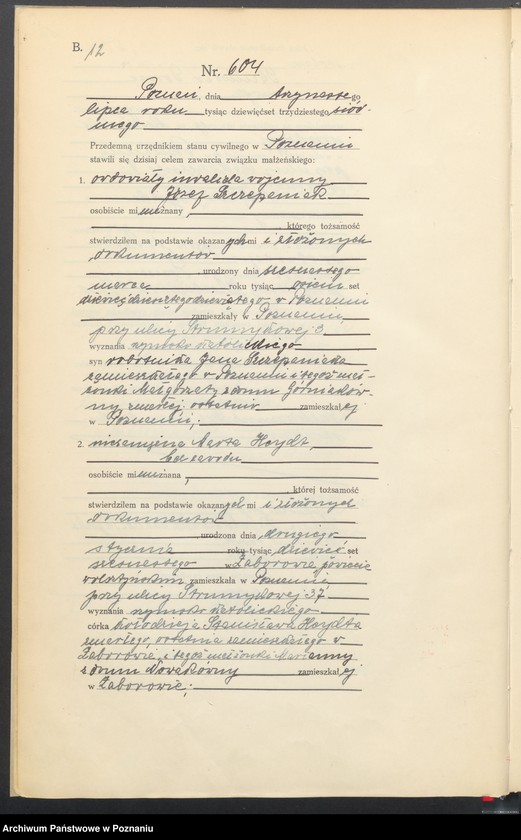 B. 12
Nr. 604
Poznań, dnia trzynastego
lipca roku tysiąc dziewięćset trzydziestego siód-
mego
Przedemną urzędnikiem stanu cywilnego w Poznaniu
stawili się dzisiaj celem zawarcia związku małżeńskiego:
1. owdowiały inwalida wojenny
Józef Szczepaniak
osobiście mi nieznany,
którego tożsamość
stwierdziłem na podstawie okazanych mi i złożonych
dokumentów
, urodzony dnia szesnastego
marca roku tysiąc osiem set
dziewięćdziesiątego dziewiątego w Poznaniu
zamieszkały w Poznaniu,
przy ulicy Strumykowej 3
wyznania rzymsko katolickiego
syn robotnika Jana Szczepaniaka
zamieszkałego w Poznaniu i tegoż mał-
żonki Małgorzaty z domu Górniaków-
ny zmarłej, ostatnio zamieszkałej
w Poznaniu;
2. niezamężna Marta Haydt,
bez zawodu
osobiście mi nieznana,
której tożsamość
stwierdziłem na podstawie okazanych mi i złożonych
dokumentów
, urodzona dnia drugiego
stycznia roku tysiąc dziewięć set
szesnastego w Zaborowie powiecie
wolsztyńskim zamieszkała w Poznaniu,
przy ulicy Strumykowej 37
wyznania rzymsko katolickiego
córka Stanisława Haydta
zmarłego, ostatnio zamieszkałego w
Zaborowie, i tegoż małżonki Marianny
z domu Nowakówny zamieszkałej
w Zaborowie;
Archiwum Państwowe w Poznaniu